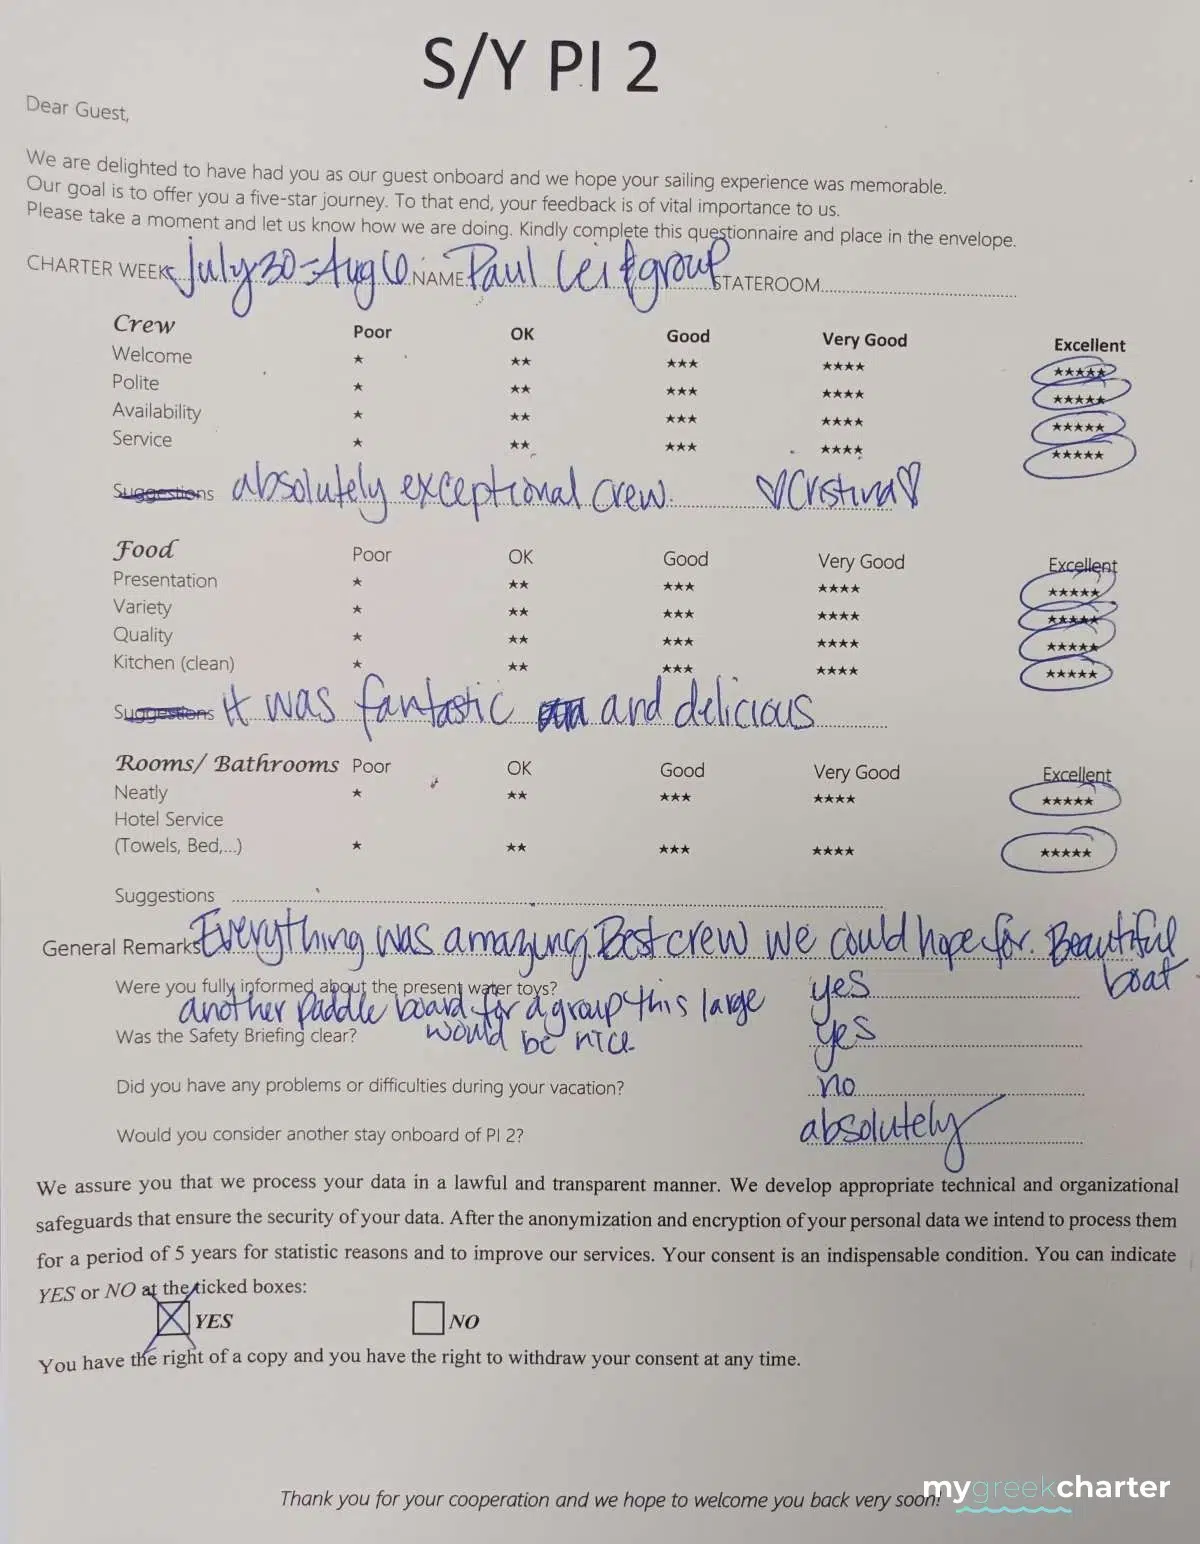 S/Y PI 2
Dear Guest,
We are delighted to have had you as our guest onboard and we hope your sailing experience was memorable.
Our goal is to offer you a five-star journey. To that end, your feedback is of vital importance to us.
Please take a moment and let us know how we are doing. Kindly complete this questionnaire and place in the envelope.
CHARTER WEEK July 30 - Aug 6 NAME Paul Lei & group STATEROOM
Crew Poor OK Good Very Good Excellent
Welcome ★ ★★ ★★★ ★★★★ ★★★★★
Polite ★ ★★ ★★★ ★★★★ ★★★★★
Availability ★ ★★ ★★★ ★★★★ ★★★★★
Service ★ ★★ ★★★ ★★★★ ★★★★★
Suggestions absolutely exceptional crew. ♡Cristina♡
Food Poor OK Good Very Good Excellent
Presentation ★ ★★ ★★★ ★★★★ ★★★★★
Variety ★ ★★ ★★★ ★★★★ ★★★★★
Quality ★ ★★ ★★★ ★★★★ ★★★★★
Kitchen (clean) ★ ★★ ★★★ ★★★★ ★★★★★
Suggestions it was fantastic and delicious
Rooms/ Bathrooms Poor OK Good Very Good Excellent
Neatly ★ ★★ ★★★ ★★★★ ★★★★★
Hotel Service
(Towels, Bed,...) ★ ★★ ★★★ ★★★★ ★★★★★
Suggestions
General Remarks Everything was amazing. Best crew we could hope for. Beautiful
boat
Were you fully informed about the present water toys? yes
another paddle board for a group this large
would be nice
Was the Safety Briefing clear? yes
Did you have any problems or difficulties during your vacation? no
Would you consider another stay onboard of PI 2? absolutely
We assure you that we process your data in a lawful and transparent manner. We develop appropriate technical and organizational
safeguards that ensure the security of your data. After the anonymization and encryption of your personal data we intend to process them
for a period of 5 years for statistic reasons and to improve our services. Your consent is an indispensable condition. You can indicate
YES or NO at the ticked boxes:
YES NO
You have the right of a copy and you have the right to withdraw your consent at any time.
Thank you for your cooperation and we hope to welcome you back very soon!
mygreekcharter